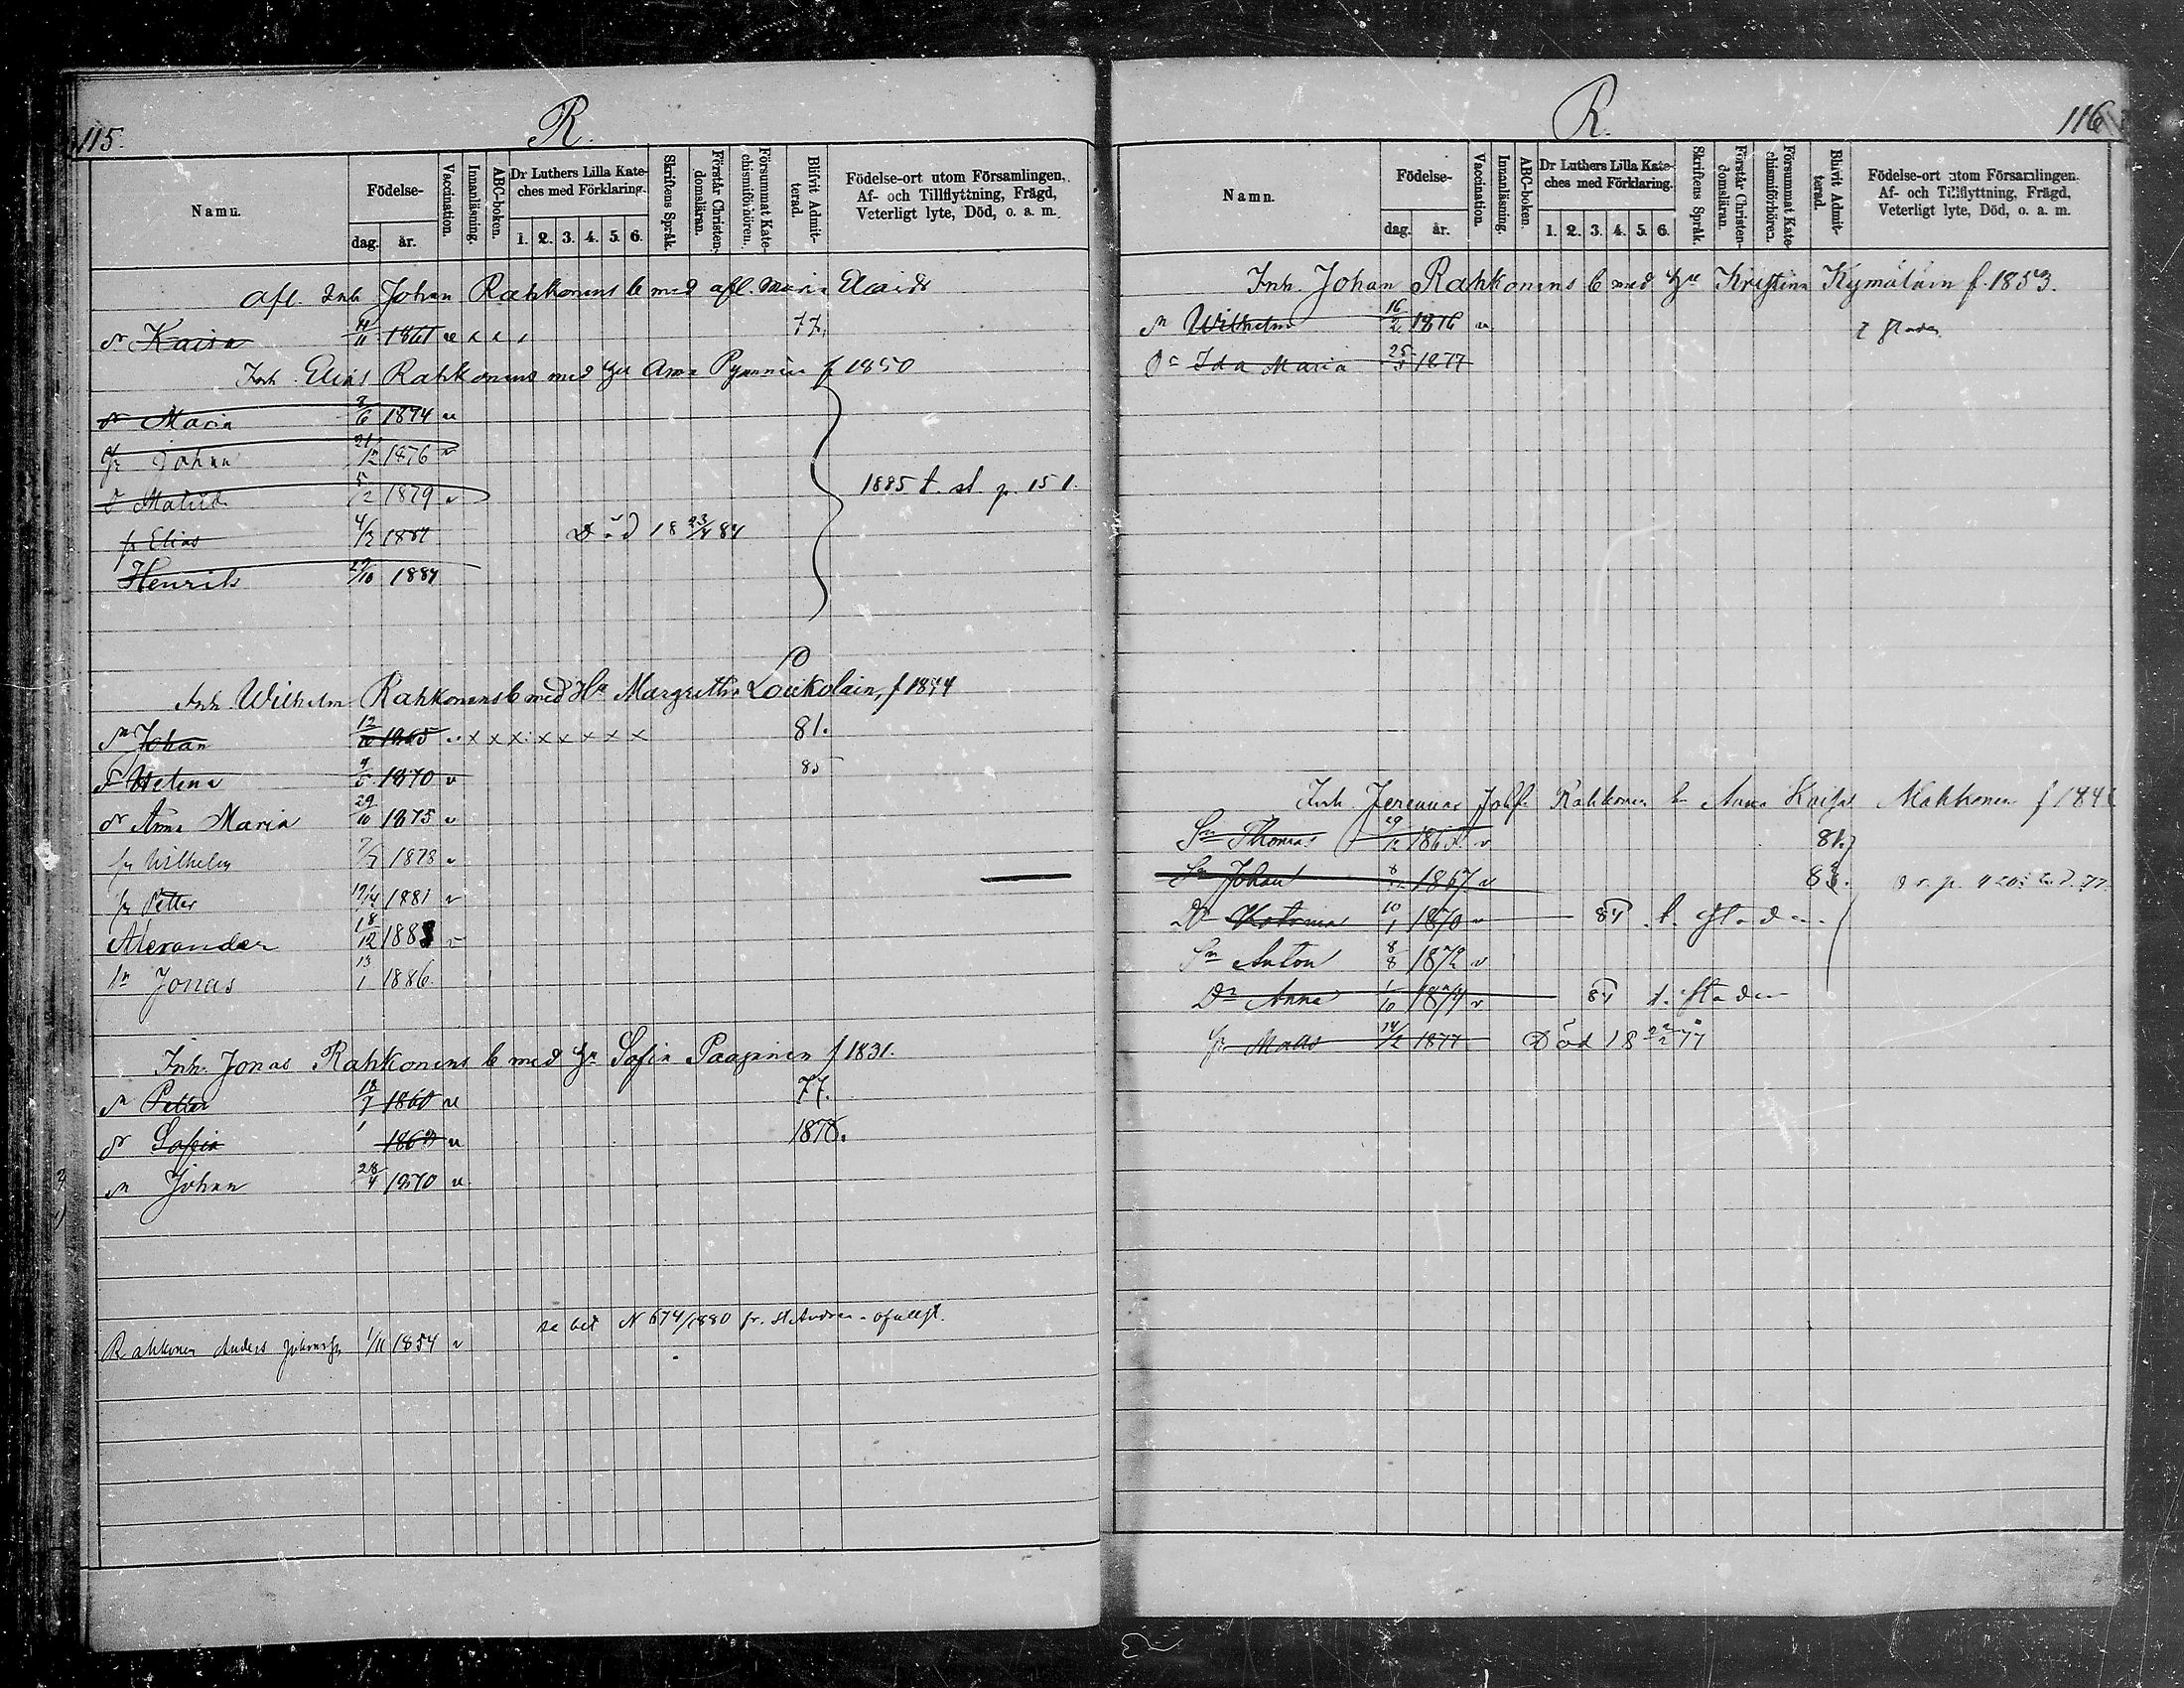 115.
R.
Namn.
Födelse-
dag.
år.
Vaccination.
Innanläsning.
ABC-boken.
Dr Luthers Lilla Kate-
ches med Förklaring.
1. 2. 3. 4. 5. 6.
Skriftens Språk.
Förstår Christen-
domsläran.
Försummat Kate-
chismiförhören.
Blifvit Admit-
terad.
Födelse-ort utom Församlingen,
Af- och Tillflyttning, Frägd,
Veterligt lyte, Död, o. a. m.
Afl. Inh Johan Rahkonens b med afl. Maria
Kaisa 1861 77.
Inh. Elias Rahkonens med Anna f 1850
Maria 8/6 1874
Johan 21/12 1876 v
Matild 5/2 1879 v
1885 t. st. p. 151.
Elias 1881 Död 18 23/4 84
Henrik 1884
Inh. Wilhelm Rahkonens b med Hu Margretha Loukolain, f 1844
Johan 12/10 1865 x x x x x x x x 81.
Helena 1870 v 85
Anna Maria 29/10 1875 v
Wilhelm 1878 v
Petter 1881 v
Alexander 18/12 1883 v
Jonas 13/1 1886.
Inh. Jonas Rahkonens b med Sofia Paajanen f 1831.
Petter 18/7 1860 77.
Sofia 1863 1878.
Johan 28/4 1870
Rahkonen Anders 1/11 1854 v
se bet N 674/1880 fr. St. Andrea
116
R.
Namn.
Födelse-
dag.
år.
Vaccination.
Innanläsning.
ABC-boken.
Dr Luthers Lilla Kate-
ches med Förklaring.
1. 2. 3. 4. 5. 6.
Skriftens Språk.
Förstår Christen-
domsläran.
Försummat Kate-
chismiförhören.
Blifvit Admit-
terad.
Födelse-ort utom Församlingen.
Af- och Tillflyttning, Frägd,
Veterligt lyte, Död, o. a. m.
Inh. Johan Rahkonens b med Kristina Kymäläin f. 1853.
Wilhelm 16/2 1876
Ida Maria 25/3 1877
Inh. Jeremias Rahkonen Anna Kaisa f
Sn Thomas 29/12 81.
Sn Johan 1867 v
Dr 10/1 1870 v 84 t. staden
Sn Anton 8/8 1872 v
Dr Anna 1/10 1874 v 84 t. staden
Matts 14/2 1877 Död 18 22/2 77